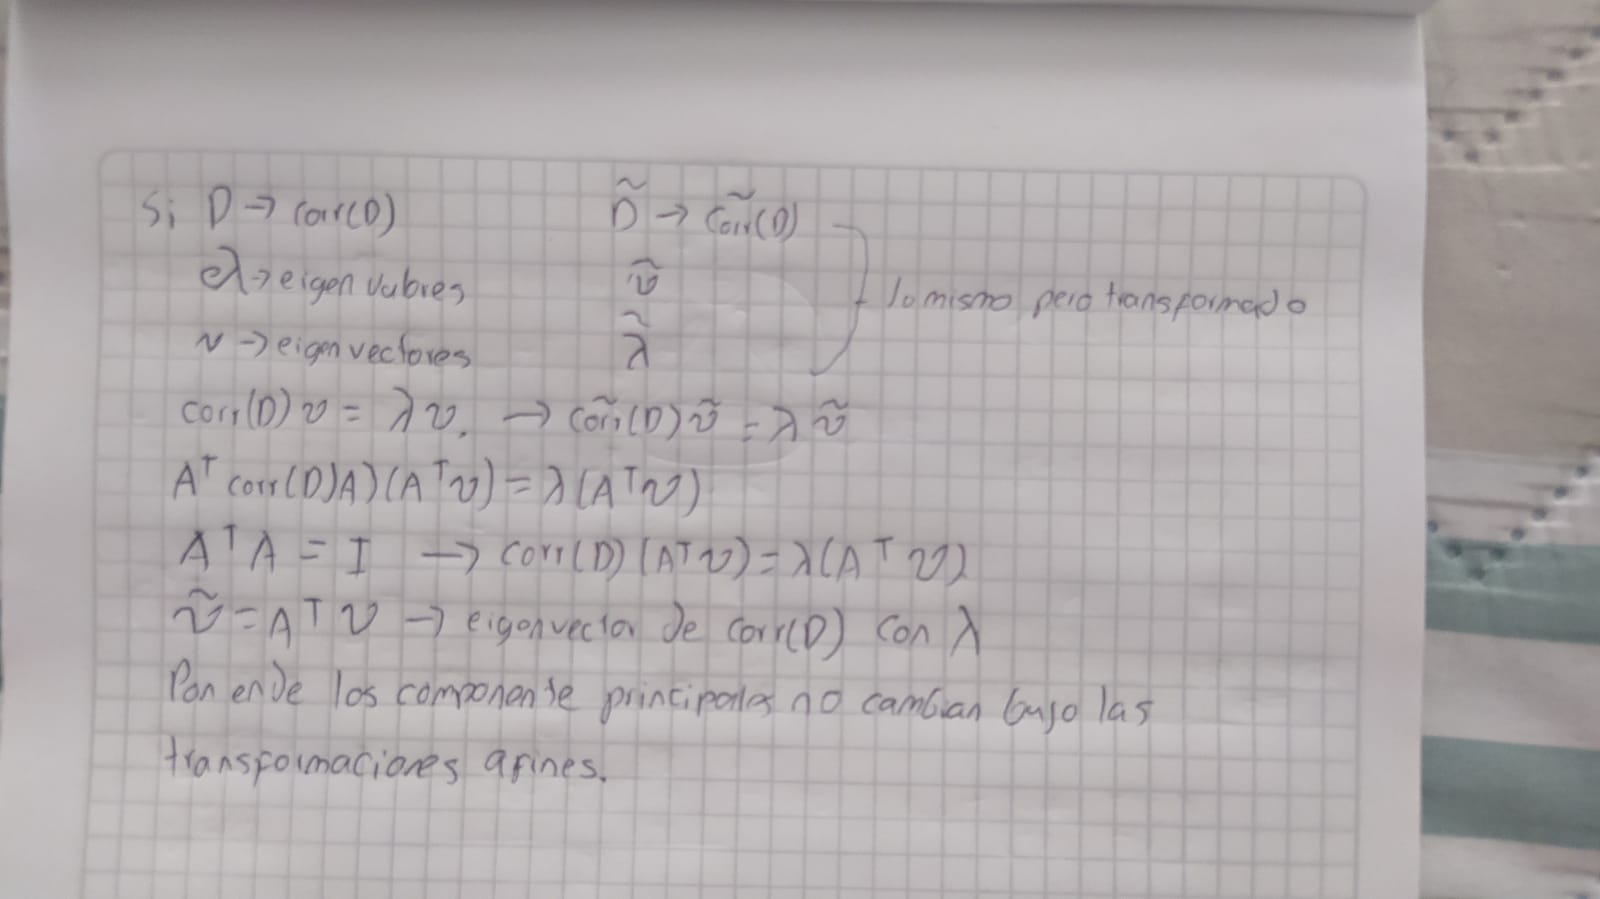 Si D → Corr(D) D̃ → Cõrr(D)
λ → eigenvalores ṽ
v → eigenvectores λ̃
lo mismo pero transformado
corr(D) v = λ v. → cõrr(D) ṽ = λ ṽ
Aᵀ corr(D)A)(Aᵀv) = λ(Aᵀv)
AᵀA = I → corr(D)(Aᵀv) = λ(Aᵀ v)
ṽ = Aᵀ v → eigenvector de corr(D) con λ
Por ende los componente principales no cambian bajo las
transformaciones afines.